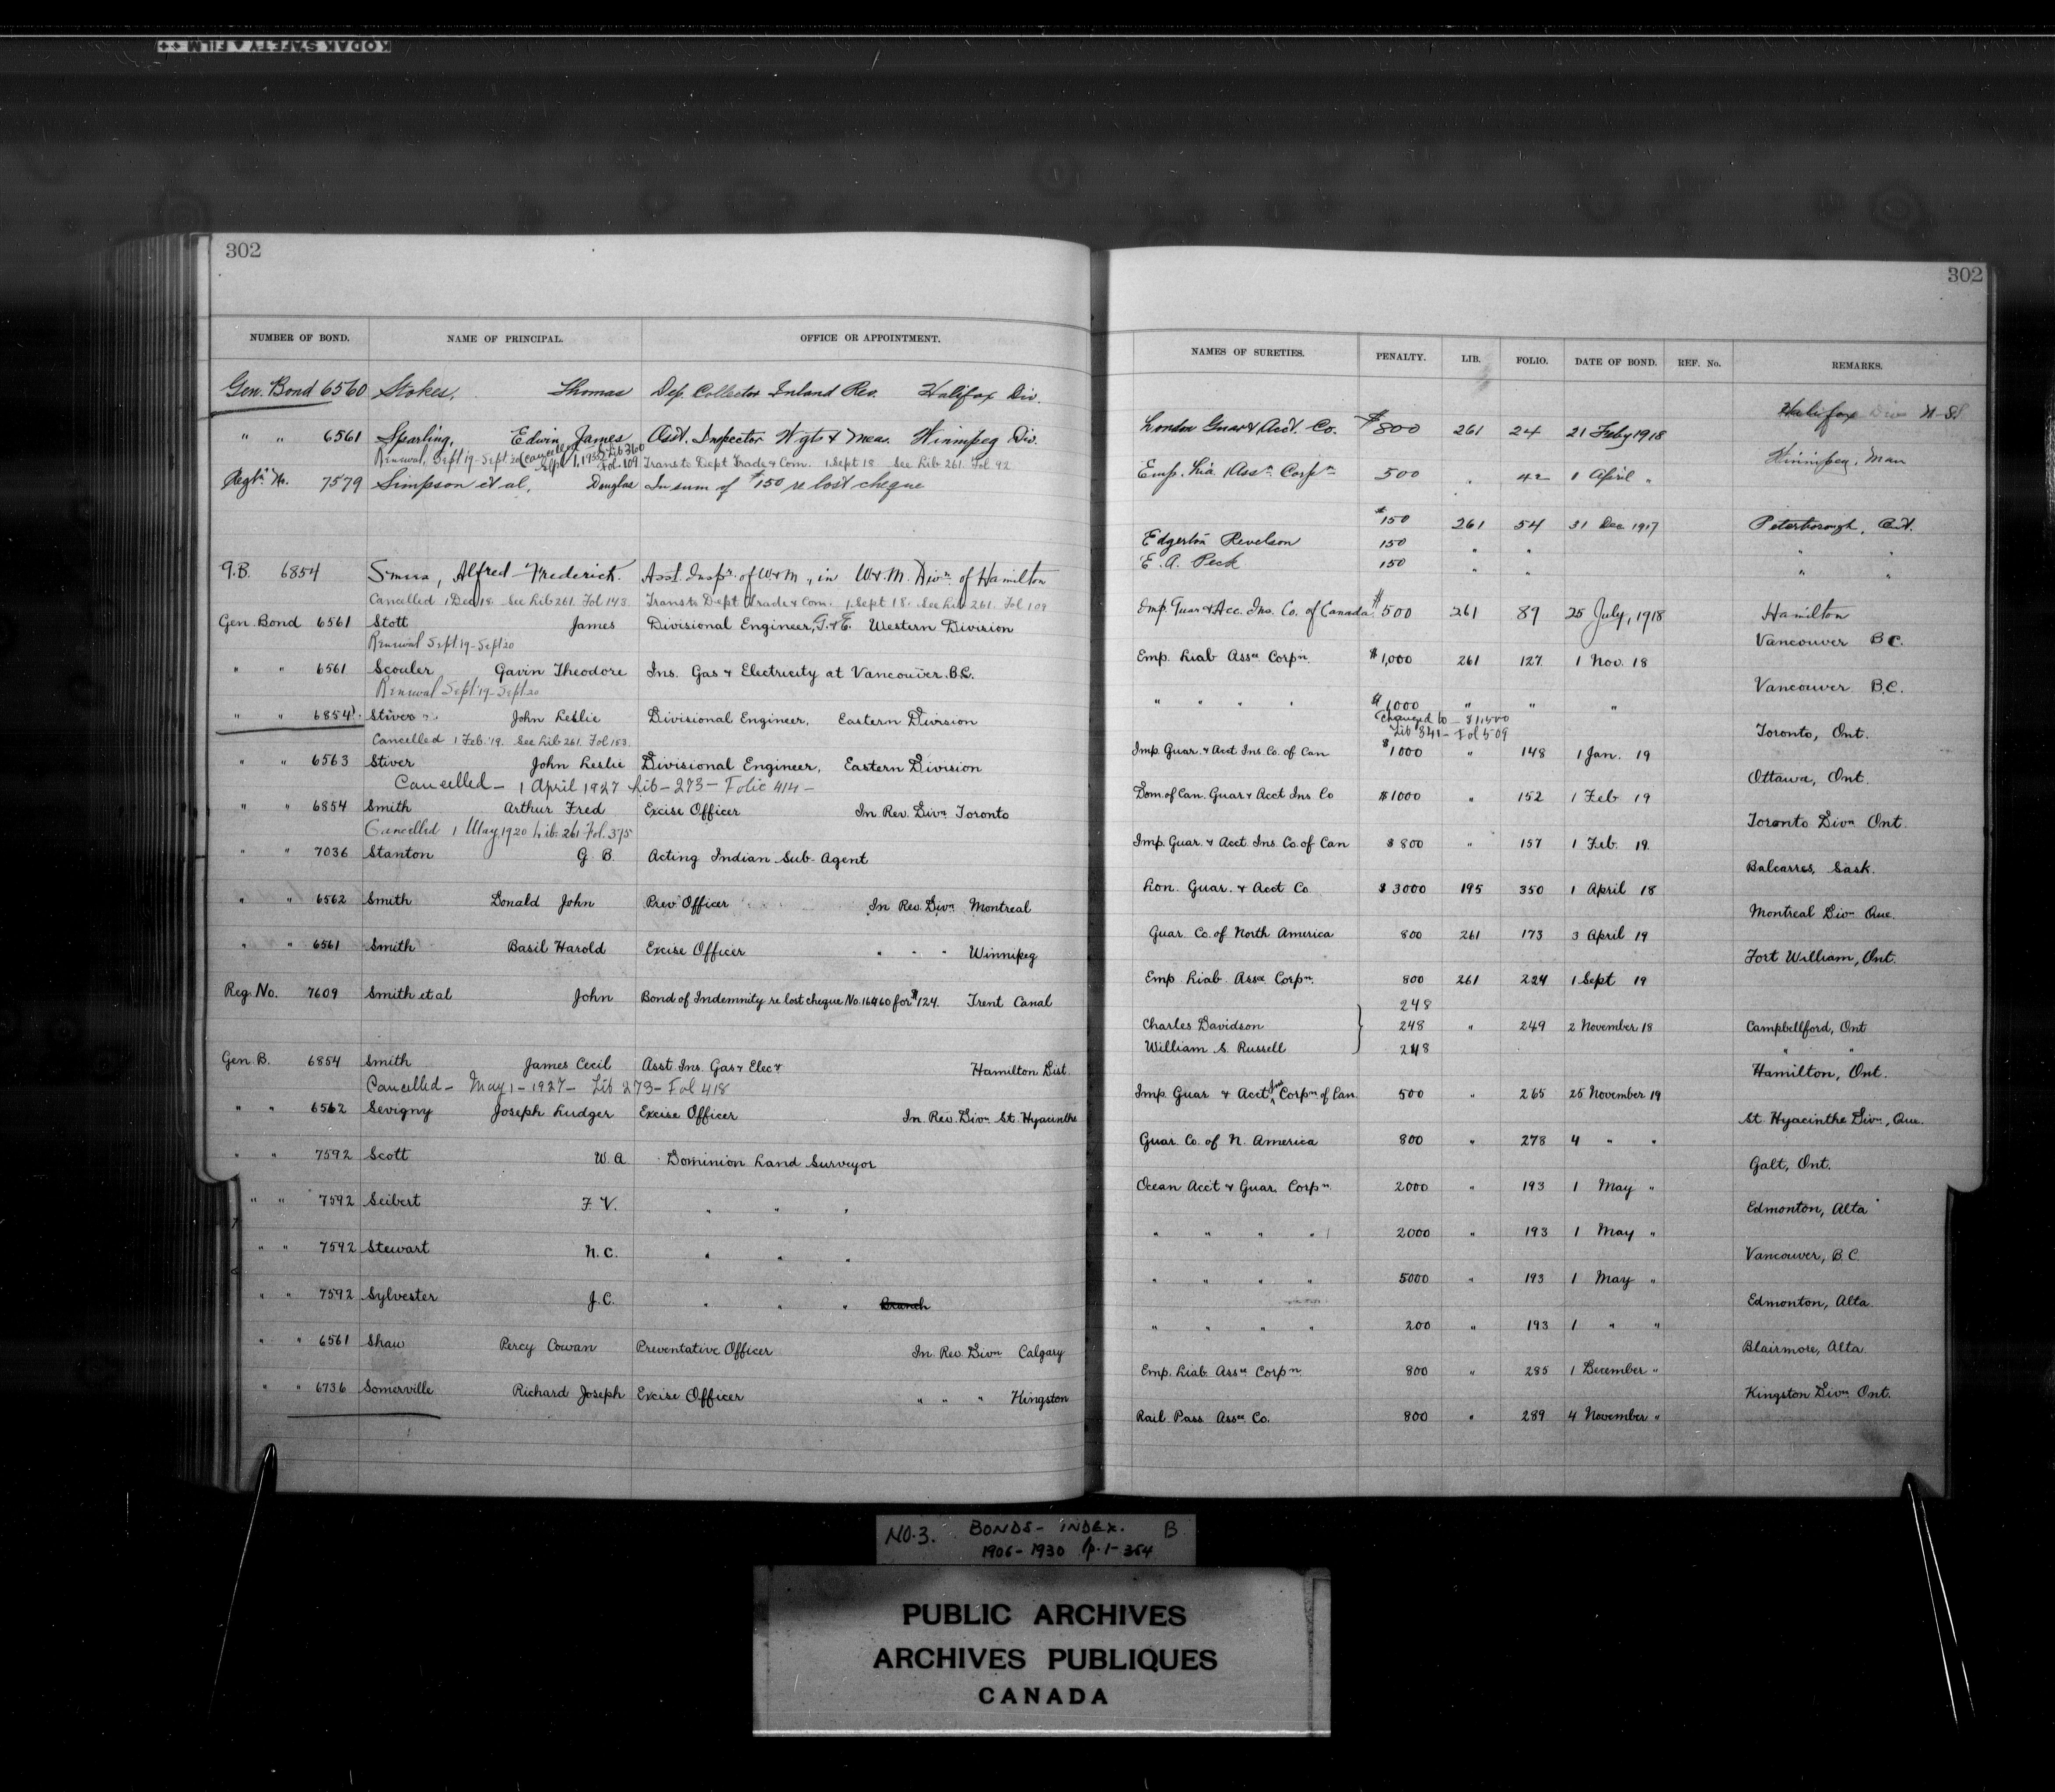 KODAK SAFETY FILM
302
NUMBER OF BOND. NAME OF PRINCIPAL. OFFICE OR APPOINTMENT.
Gen. Bond 6560 Stokes, Thomas Dep. Collector Inland Rev. Halifax Div.
" " 6561 Sparling, Edwin James Asst. Inspector Wgts & Meas. Winnipeg Div.
Renewal, Sept 19 - Sept 20 (Cancelled Sept 1, 1935 Lib 360 Fol. 109 Trans to Dept Trade & Com. 1 Sept 18 See Lib 261. Fol 92
Regtn No. 7579 Simpson et al, Douglas In sum of $150 re lost cheque
G.B. 6854 Alfred Frederick. Asst. Inspr. of W & M., in W & M. Divn. of Hamilton
Cancelled 1 Dec 18 See Lib 261. Fol 143 Trans to Dept Trade & Com. 1 Sept 18. See Lib 261. Fol 109
Gen. Bond 6561 Stott James Divisional Engineer, G. & E. Western Division
Renewal Sept 19 - Sept 20
" " 6561 Scouler Gavin Theodore Ins. Gas & Electricity at Vancouver. B.C.
Renewal Sept '19 - Sept 20
" " 6854 Stiver John Leslie Divisional Engineer, Eastern Division
Cancelled 1 Feb. '19. See Lib 261. Fol 153.
" " 6563 Stiver John Leslie Divisional Engineer, Eastern Division
Cancelled - 1 April 1927 Lib - 273 - Folio 414 -
" " 6854 Smith Arthur Fred Excise Officer In. Rev. Divn Toronto
Cancelled 1 May, 1920 Lib. 261 Fol. 375
" " 7036 Stanton G. B. Acting Indian Sub-Agent
" " 6562 Smith Donald John Prev Officer In Rev. Divn Montreal
" " 6561 Smith Basil Harold Excise Officer " " " Winnipeg
Reg. No. 7609 Smith et al John Bond of Indemnity re lost cheque No. 16460 for $124. Trent Canal
Gen B. 6854 Smith James Cecil Asst Ins. Gas & Elect Hamilton Dist.
Cancelled - May 1 - 1927 - Lib 273 - Fol 418
" " 6562 Sevigny Joseph Ludger Excise Officer In. Rev. Divn St. Hyacinthe
" " 7592 Scott W. A. Dominion Land Surveyor
" " 7592 Seibert F. V. " " "
" " 7592 Stewart N. C. " " "
" " 7592 Sylvester J. C. " " " Branch
" " 6561 Shaw Percy Cowan Preventative Officer In. Rev. Divn Calgary
" " 6736 Somerville Richard Joseph Excise Officer " " " Kingston
302
NAMES OF SURETIES. PENALTY. LIB. FOLIO. DATE OF BOND. REF. No. REMARKS.
Halifax Div N.S.
London Guar & Acct. Co. $800 261 24 21 Feby 1918
Winnipeg, Man
Emp. Lia. Assn. Corpn 500 " 42 1 April "
$150 261 54 31 Dec 1917 Peterborough, Ont.
Edgerton Revelson 150 " " " "
E. A. Peck 150 " " " "
Imp. Guar & Acc. Ins. Co. of Canada $500 261 89 25 July, 1918 Hamilton
Vancouver B C.
Emp. Liab Assce Corpn. $1,000 261 127 1 Nov. 18
Vancouver B.C.
" " " " $1000 " " "
Changed to - $1,500
Lib 341 - Fol 509 Toronto, Ont.
Imp. Guar. & Acct Ins. Co. of Can $1000 " 148 1 Jan. 19
Ottawa, Ont
Dom. of Can. Guar & Acct Ins Co $1000 " 152 1 Feb 19
Toronto Divn Ont.
Imp. Guar. & Acct Ins. Co. of Can $800 " 157 1 Feb. 19.
Balcarres, Sask.
Lon. Guar. & Acct Co $3000 195 350 1 April 18
Montreal Divn Que.
Guar. Co. of North America 800 261 173 3 April 19
Fort William, Ont.
Emp Liab. Assce Corpn. 800 261 224 1 Sept 19
248
Charles Davidson 248 " 249 2 November 18 Campbellford, Ont
William S. Russell 248 " "
Hamilton, Ont.
Imp. Guar & Acct Ins Corpn of Can. 500 " 265 25 November 19
St. Hyacinthe Divn, Que.
Guar. Co. of N. America 800 " 278 4 " "
Galt, Ont.
Ocean Acc't & Guar. Corpn. 2000 " 193 1 May "
Edmonton, Alta
" " " " 2000 " 193 1 May "
Vancouver, B.C
" " " " 5000 " 193 1 May "
Edmonton, Alta.
" " " " 200 " 193 1 " "
Blairmore, Alta
Emp. Liab. Assce Corpn. 800 " 285 1 December "
Kingston Divn Ont.
Rail. Pass. Assce Co. 800 " 289 4 November "
NO. 3. BONDS - INDEX. B
1906 - 1930 p. 1 - 364
PUBLIC ARCHIVES
ARCHIVES PUBLIQUES
CANADA